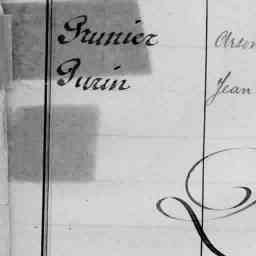 Prunier
Purin Jean